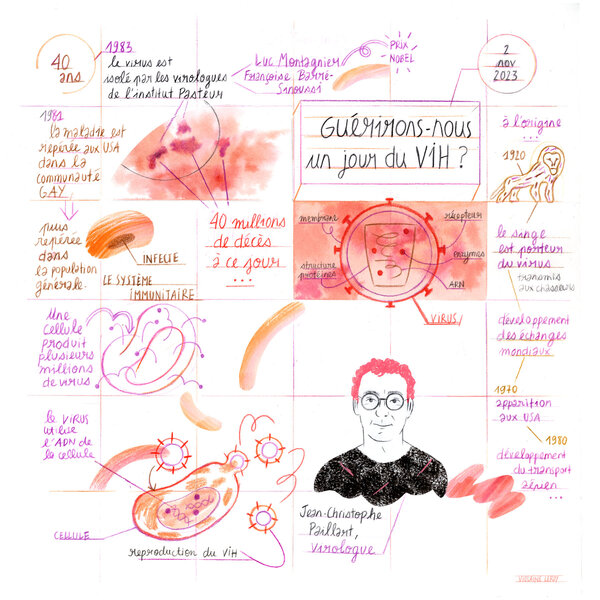 40
ans
1983
le virus est
isolé par les virologues
de l'institut Pasteur
Luc Montagnier
Françoise Barré-
Sinoussi
PRIX
NOBEL
2
nov
2023
Guérirons-nous
un jour du VIH ?
1981
la maladie est
repérée aux USA
dans la
communauté
GAY
puis
repérée
dans
la population
générale.
INFECTE
LE SYSTÈME
IMMUNITAIRE
40 millions
de décès
à ce jour
...
membrane
récepteurs
enzymes
structure
protéines
ARN
VIRUS
à l'origine
...
1920
le singe
est porteur
du virus
transmis
aux chasseurs
développement
des échanges
mondiaux
1970
apparition
aux USA
1980
développement
du transport
aérien
...
Une
cellule
produit
plusieurs
millions
de virus
le virus
utilise
l'ADN de
la cellule
CELLULE
reproduction du VIH
Jean-Christophe
Paillart,
Virologue
VIOLAINE LEROY